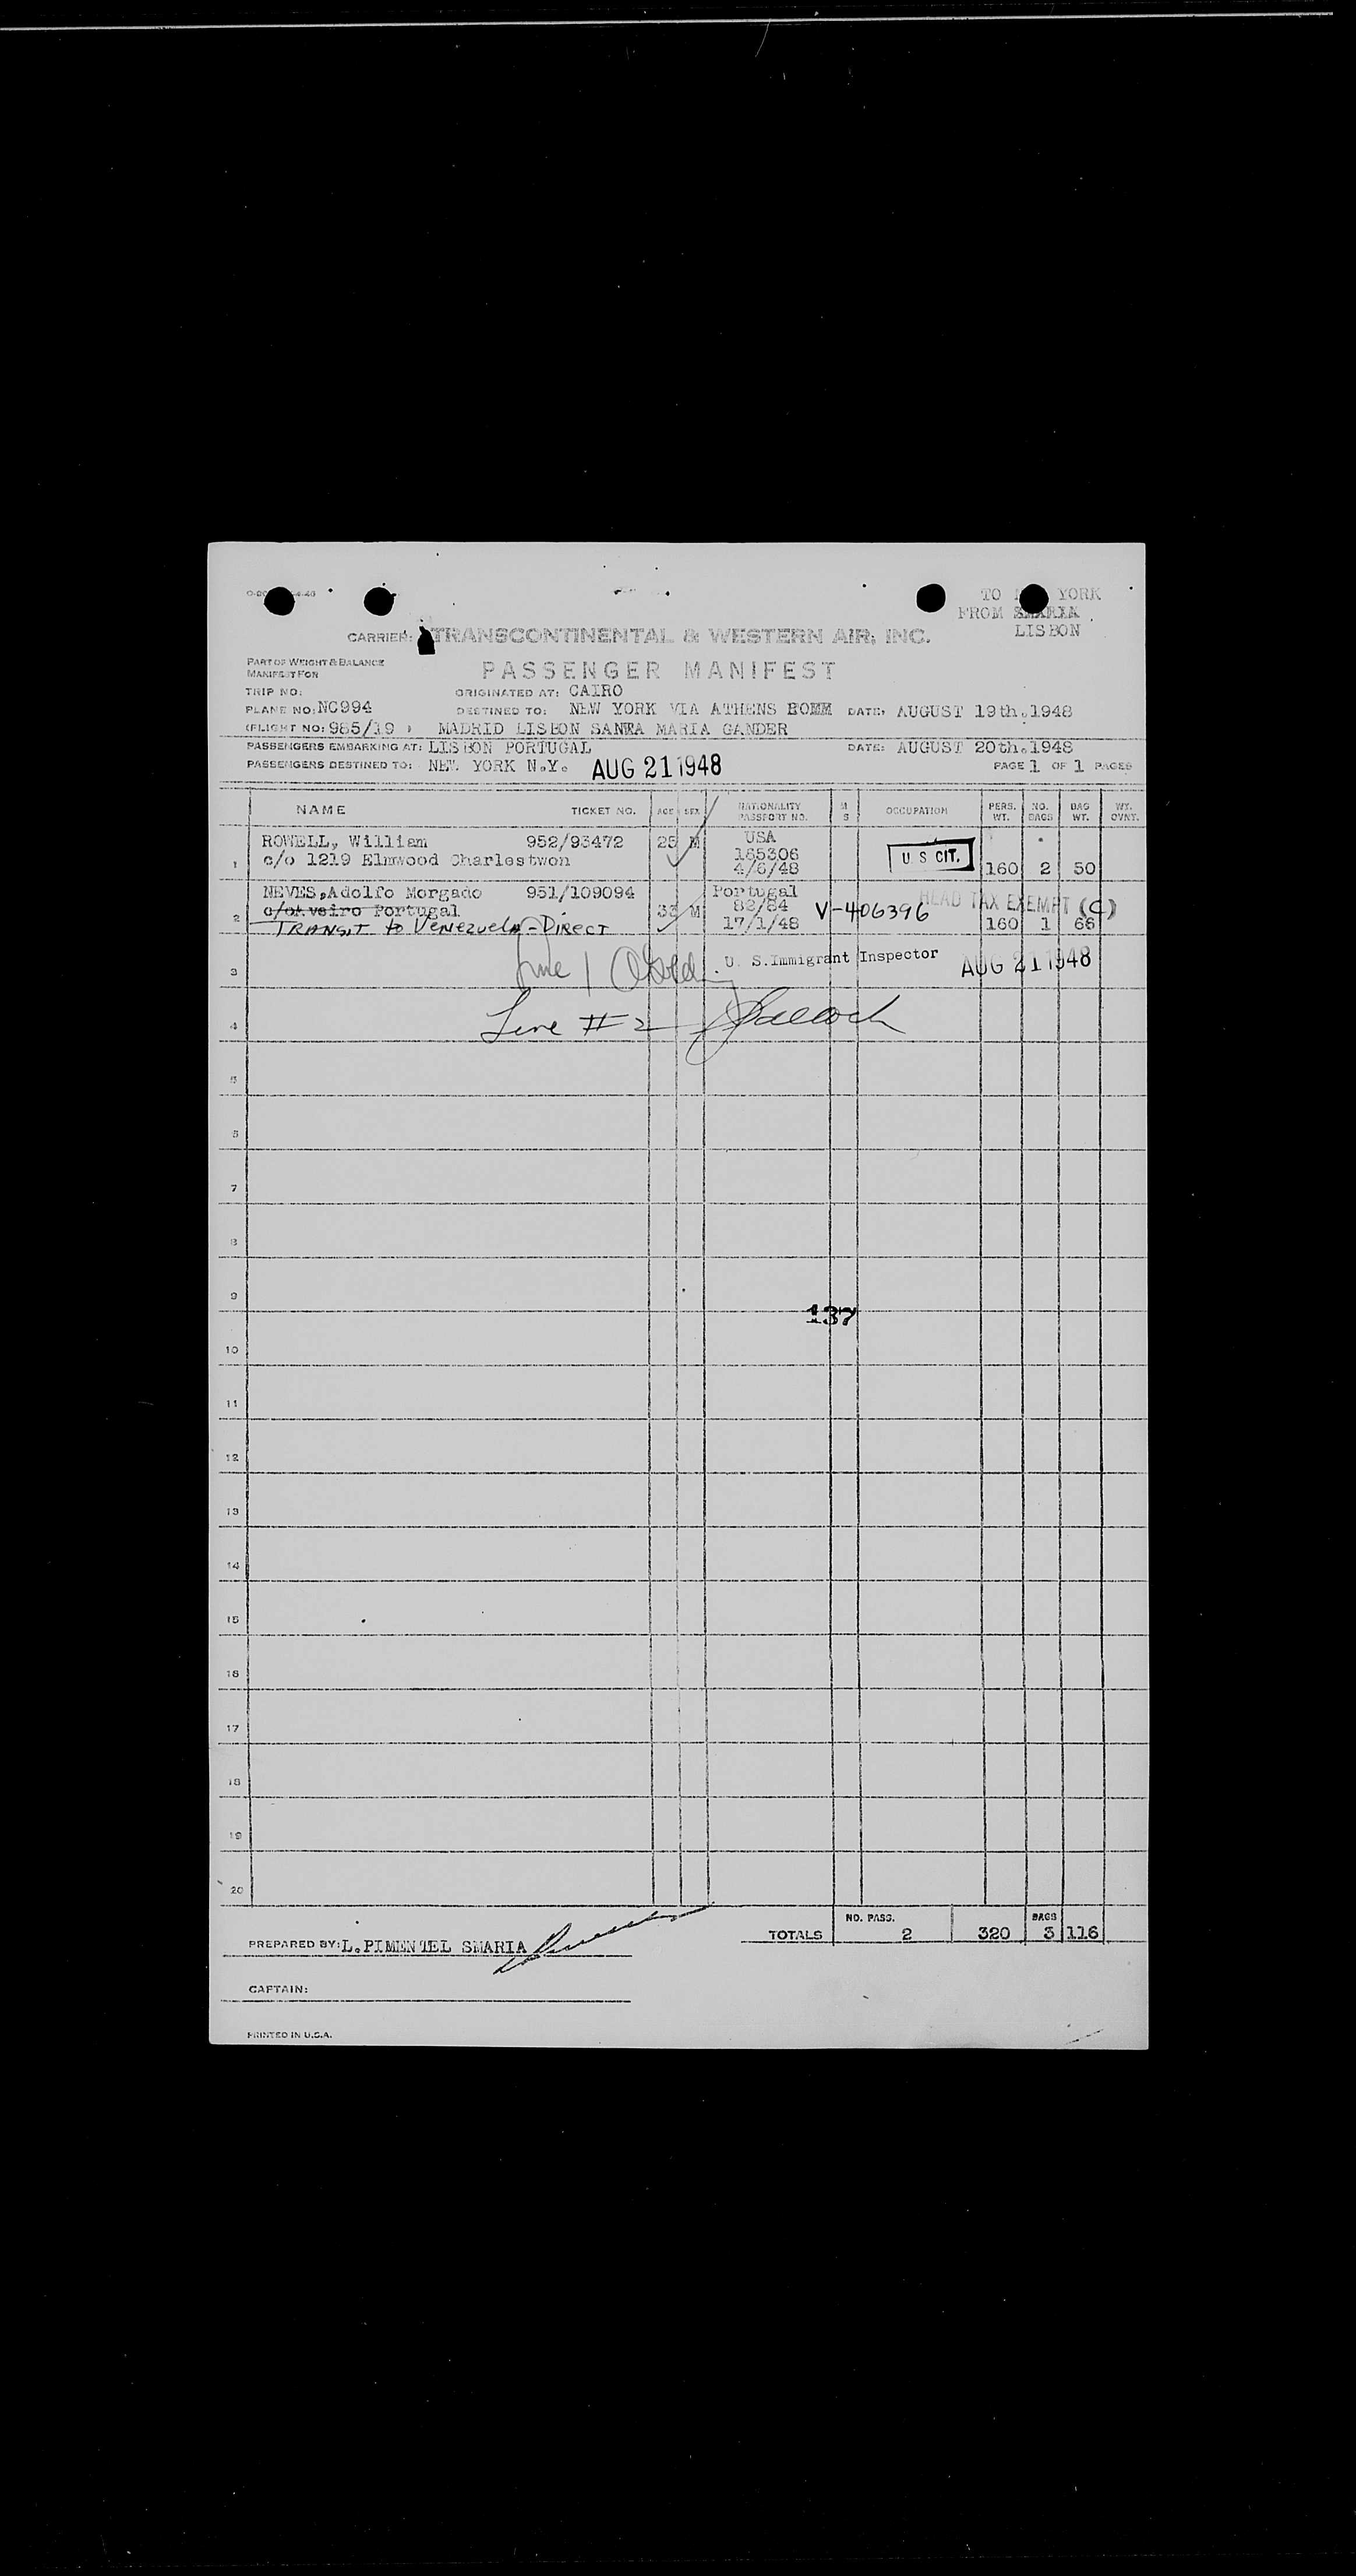 TO YORK
FROM SMARIA
LISBON
CARRIER: TRANSCONTINENTAL & WESTERN AIR, INC.
PART OF WEIGHT & BALANCE
MANIFEST FOR
PASSENGER MANIFEST
TRIP NO: ORIGINATED AT: CAIRO
PLANE NO: NC994 DESTINED TO: NEW YORK VIA ATHENS ROMM DATE: AUGUST 19th.1948
(FLIGHT NO: 985/19 ) MADRID LISBON SANRA MARIA GANDER
PASSENGERS EMBARKING AT: LISBON PORTUGAL DATE: AUGUST 20th.1948
PASSENGERS DESTINED TO: NEW YORK N.Y. AUG 21 1948 PAGE 1 OF 1 PAGES
NAME TICKET NO. AGE SEX NATIONALITY PASSPORT NO. M S OCCUPATION PERS. WT. NO. BAGS BAG WT. WT. OVNT.
ROWELL, William 952/93472 25 M USA
1 c/o 1219 Elmwood Charlestwon 165306 U S CIT.
4/6/48 160 2 50
NEVES,Adolfo Morgado 951/109094 Portugal HEAD TAX EXEMPT (C)
2 Portugal 33 M 82/64 V-406396
TRANSIT to Venezuela - DIRECT 17/1/48 160 1 66
3 Line 1 U. S.Immigrant Inspector AUG 21 1948
4 Line # 2
5
6
7
8
9
137
10
11
12
13
14
15
16
17
18
19
20
NO. PASS. BAGS
TOTALS 2 320 3 116
PREPARED BY: L.PIMENTEL SMARIA
CAPTAIN:
PRINTED IN U.S.A.